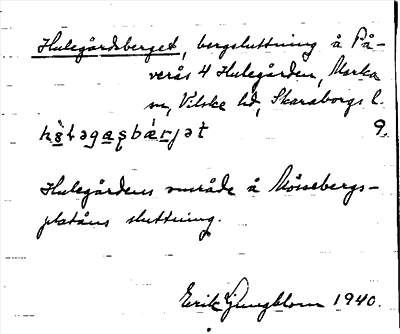 Hulegårdsberget, bergsluttning å På-
verås 4 Hulegården, Marka
sn, Vilske hd, Skaraborgs l.
9.
Hulegårdens område å Mössebergs-
platåns sluttning.
Erik Ljungblom 1940.